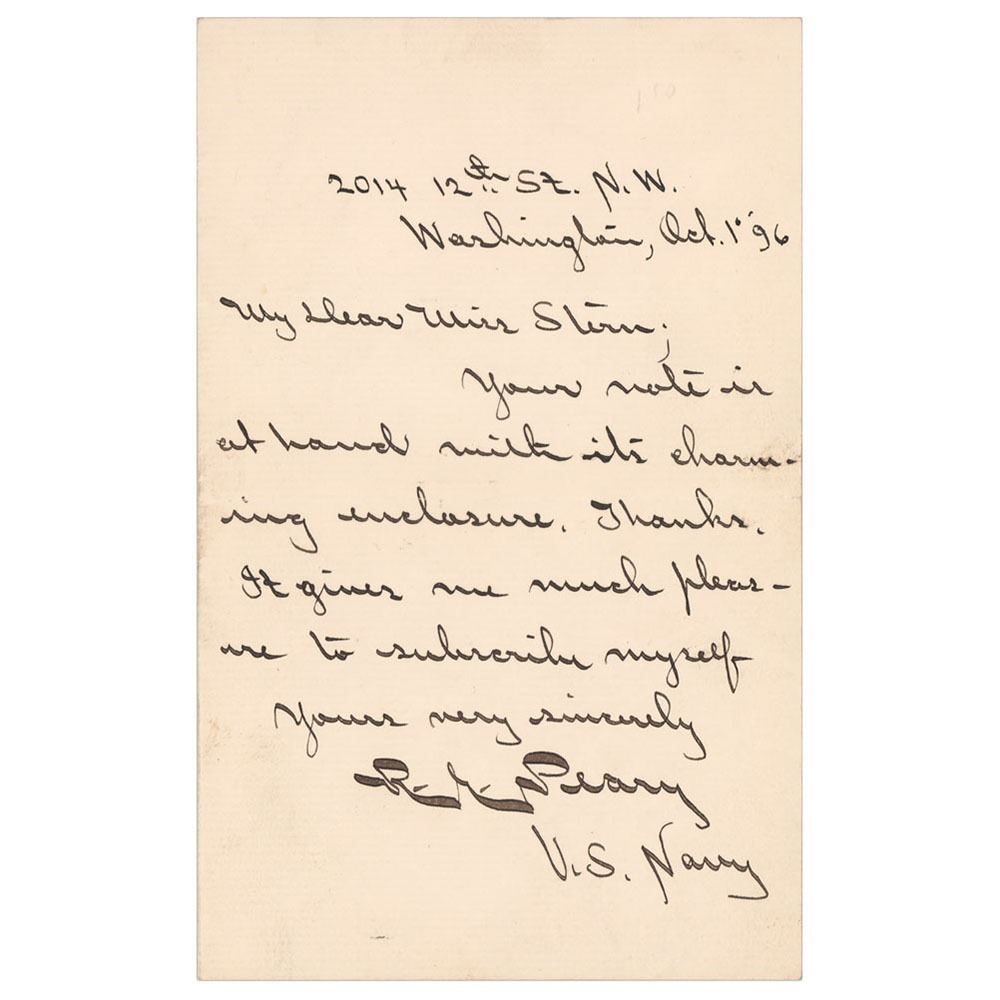 150
2014 12th St. N.W.
Washington, Oct. 1" 96
My Dear Miss Stern;
Your note is
at hand with its charm-
ing enclosure. Thanks.
It gives me much pleas-
ure to subscribe myself
Yours very sincerely
R. E. Peary
U.S. Navy